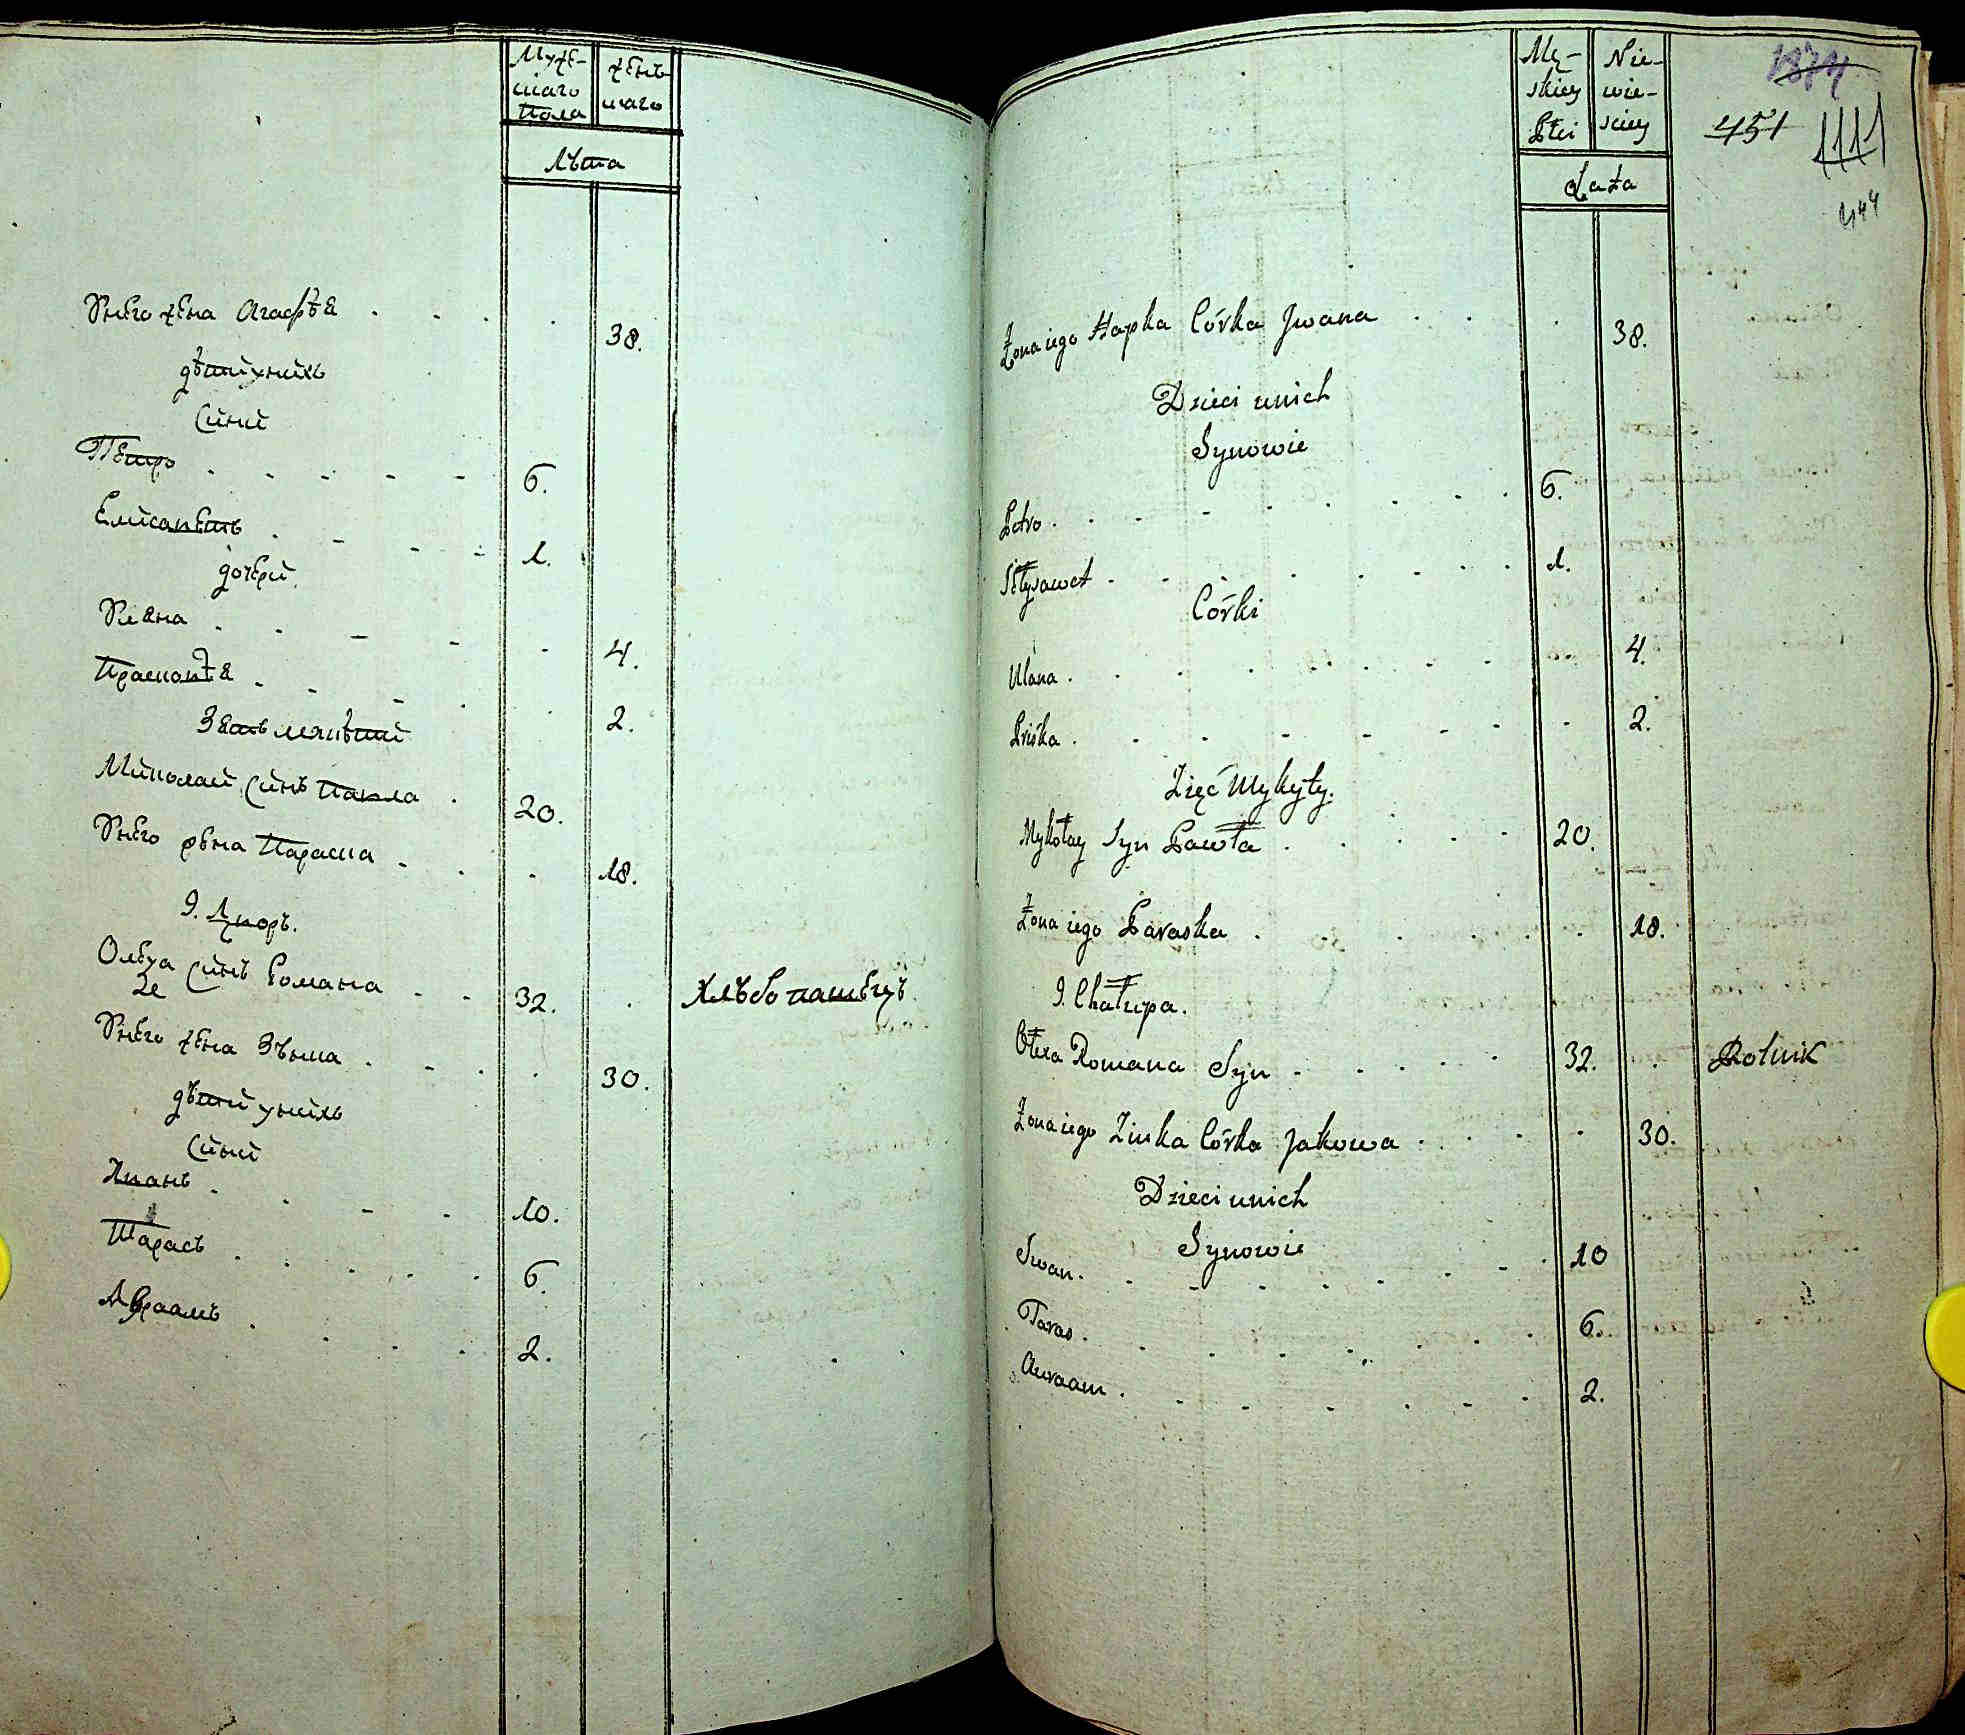 Муже-
скаго
Пола
Жень-
скаго
Лѣта
Унего жена Агафѣя 38.
дѣти унихъ
Сини
Петро 6.
Елисаветъ 1.
дочери
Уляна 4.
Прасковѣя 2.
Зять
Миколай Синъ Павла 20.
Унего жена Параска 18.
9. Дворъ.
Олеxа Синъ Романа 32. Хлѣбопашецъ
2е
Унего жена Зѣнка 30.
дѣти унихъ
Сини
Иванъ 10.
Тарасъ 6.
Авраамъ 2.
Mę-
skiey
Płci
Nie-
wie-
sciey
Lata
1874
451
1111
444
Żona iego Hapka Córka Jwana 38.
Dzieci unich
Synowie
Petro 6.
Iłysawet 1.
Córki
Ulana 4.
Priśka 2.
Zięć Mykyty.
Mykołay Syn Pawła 20.
Żona iego Paraska 18.
9. Chałupa.
Ołexa Romana Syn 32. Rolnik
Żona iego Zinka Córka Jakowa 30.
Dzieci unich
Synowie
Iwan. 10
Taras. 6.
Auraam. 2.